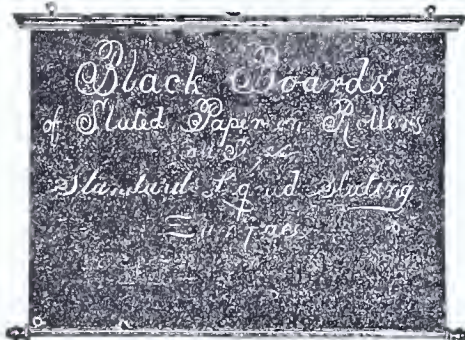 Black Boards
of Slated Paper on Rollers
all Sizes
Standard Liquid Slating